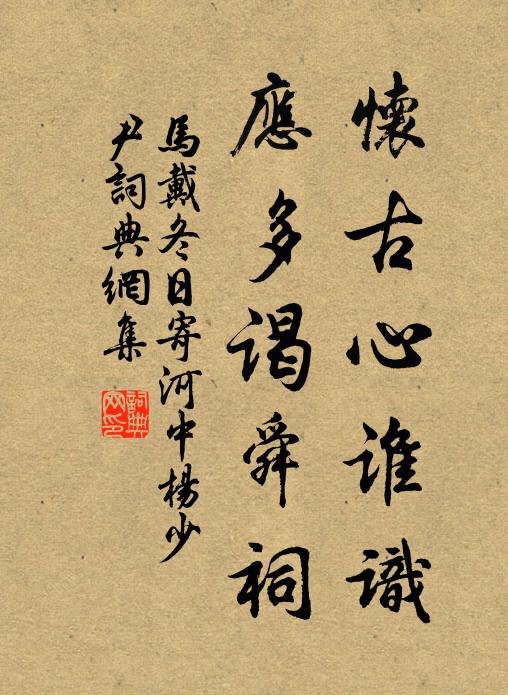 懷古心誰識
應多謁舜祠
馬戴冬日寄河中楊少
尹詞典網集
詞典網印